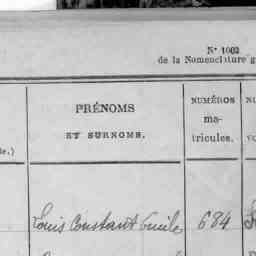 N° 1002
de la Nomenclature g
PRÉNOMS
ET SURNOMS.
NUMÉROS
ma-
tricules.
de.)
Louis Constant Emile
684